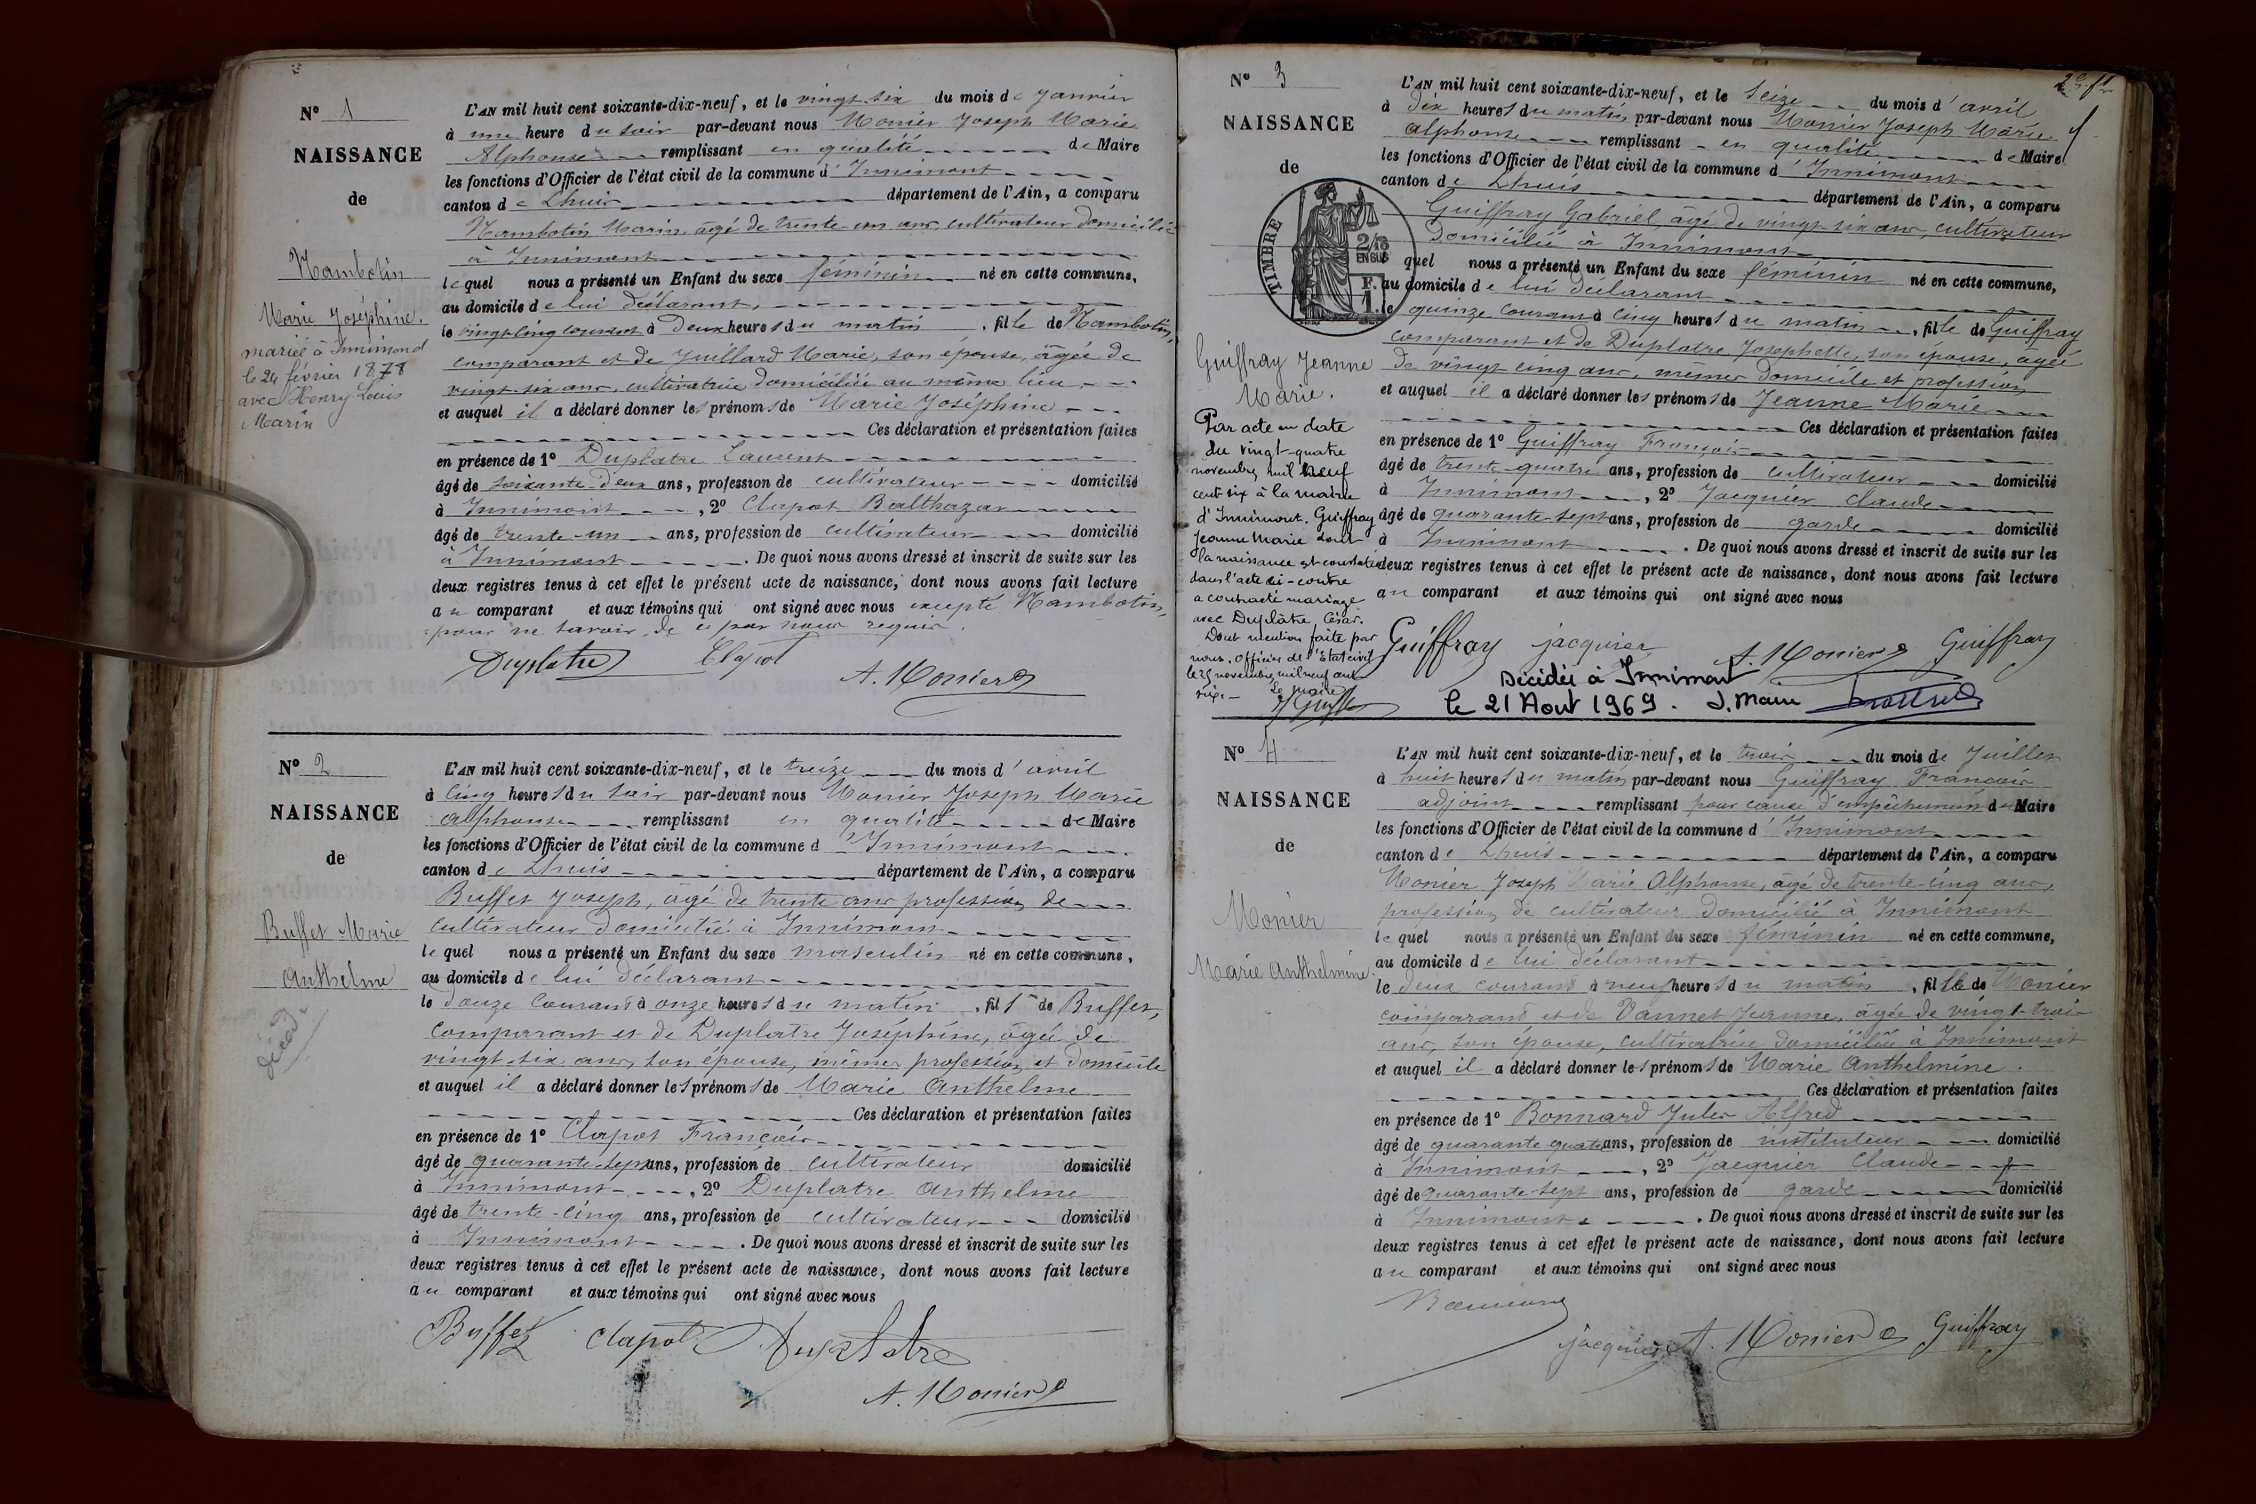 N° 1
NAISSANCE
de
Nambotin
Marie Joséphine.
mariée à Innimond
le 24 février 1878
avec Henry Louis
Marin
L'AN mil huit cent soixante-dix-neuf, et le vingt six du mois de Janvier
à une heure du soir par-devant nous Monier Joseph Marie
Alphonse remplissant en qualité de Maire
les fonctions d'Officier de l'état civil de la commune d'Innimont
canton de Lhuis département de l'Ain, a comparu
Nambotin Marin âgé de trente-un ans, cultivateur domicilié
à Innimont
lequel nous a présenté un Enfant du sexe féminin né en cette commune,
au domicile de lui déclarant,
le vingt-cinq courant à deux heures du matin, fille de Nambotin,
comparant et de Juillard Marie, son épouse, âgée de
vingt-six ans, cultivatrice domiciliée au même lieu
et auquel il a déclaré donner les prénoms de Marie Joséphine
Ces déclaration et présentation faites
en présence de 1° Duplatre Laurent
âgé de soixante-deux ans, profession de cultivateur domicilié
à Innimont, 2° Clapot Balthazar
âgé de trente-un ans, profession de cultivateur domicilié
à Innimont. De quoi nous avons dressé et inscrit de suite sur les
deux registres tenus à cet effet le présent acte de naissance, dont nous avons fait lecture
au comparant et aux témoins qui ont signé avec nous excepté Nambotin,
pour ne savoir, de ce par nous requis.
Duplatre Clapot
A. Monier
N° 2
NAISSANCE
de
Buffet Marie
Anthelme
décédé
L'AN mil huit cent soixante-dix-neuf, et le treize du mois d'avril
à cinq heures du soir par-devant nous Monier Joseph Marie
Alphonse remplissant en qualité de Maire
les fonctions d'Officier de l'état civil de la commune d Innimont
canton de Lhuis département de l'Ain, a comparu
Buffet Joseph, âgé de trente ans profession de
cultivateur domicilié à Innimont
lequel nous a présenté un Enfant du sexe masculin né en cette commune,
au domicile de lui déclarant
le douze courant à onze heures du matin, fils de Buffet,
comparant et de Duplatre Joséphine, âgée de
vingt-six ans, son épouse, mêmes profession et domicile
et auquel il a déclaré donner les prénoms de Marie Anthelme
Ces déclaration et présentation faites
en présence de 1° Clapot François
âgé de quarante-sept ans, profession de cultivateur domicilié
à Innimont, 2° Duplatre Anthelme
âgé de trente-cinq ans, profession de cultivateur domicilié
à Innimont. De quoi nous avons dressé et inscrit de suite sur les
deux registres tenus à cet effet le présent acte de naissance, dont nous avons fait lecture
au comparant et aux témoins qui ont signé avec nous
Buffet Clapot Duplatre
A. Monier
2e ft
N° 3
NAISSANCE
de
TIMBRE
2/10
EN SUS
F.
1.
Guiffray Jeanne
Marie.
Par acte en date
du vingt-quatre
novembre mil neuf
cent six à la mairie
d'Innimont. Guiffray
Jeanne Marie dont
la naissance est constatée
dans l'acte ci-contre
a contracté mariage
avec Duplâtre César.
Dont mention faite par
nous, Officier de l'Etat civil
le 25 novembre mil neuf cent
six.
Le Maire
L'AN mil huit cent soixante-dix-neuf, et le seize du mois d'avril
à dix heures du matin par-devant nous Monier Joseph Marie
Alphonse remplissant en qualité de Maire
les fonctions d'Officier de l'état civil de la commune d'Innimont
canton de Lhuis département de l'Ain, a comparu
Guiffray Gabriel, âgé de vingt-six ans, cultivateur
domicilié à Innimont
quel nous a présenté un Enfant du sexe féminin né en cette commune,
au domicile de lui déclarant
le quinze courant à cinq heures du matin, fille de Guiffray
comparant et de Duplatre Josephette, son épouse, âgée
de vingt-cinq ans, mêmes domicile et profession
et auquel il a déclaré donner les prénoms de Jeanne Marie
Ces déclaration et présentation faites
en présence de 1° Guiffray François
âgé de trente-quatre ans, profession de cultivateur domicilié
à Innimont, 2° Jacquier Claude
âgé de quarante-sept ans, profession de garde domicilié
à Innimont. De quoi nous avons dressé et inscrit de suite sur les
deux registres tenus à cet effet le présent acte de naissance, dont nous avons fait lecture
au comparant et aux témoins qui ont signé avec nous
Guiffray jacquier A. Monier Guiffray
Décédée à Innimont
le 21 Aout 1969. Maire
N° 4
NAISSANCE
de
Monier
Marie Anthelmine.
L'AN mil huit cent soixante-dix-neuf, et le trois du mois de Juillet
à huit heures du matin par-devant nous Guiffray François
adjoint remplissant pour cause d'empêchement du Maire
les fonctions d'Officier de l'état civil de la commune d'Innimont
canton de Lhuis département de l'Ain, a comparu
Monier Joseph Marie Alphonse, âgé de trente-cinq ans,
profession de cultivateur domicilié à Innimont
lequel nous a présenté un Enfant du sexe féminin né en cette commune,
au domicile de lui déclarant
le deux courant à neuf heures du matin, fille de Monier
comparant et de Vannet Jeanne, âgée de vingt-trois
ans, son épouse, cultivatrice domiciliée à Innimont
et auquel il a déclaré donner les prénoms de Marie Anthelmine.
Ces déclaration et présentation faites
en présence de 1° Bonnard Jules Alfred
âgé de quarante quatre ans, profession de instituteur domicilié
à Innimont, 2° Jacquier Claude
âgé de quarante-sept ans, profession de garde domicilié
à Innimont. De quoi nous avons dressé et inscrit de suite sur les
deux registres tenus à cet effet le présent acte de naissance, dont nous avons fait lecture
au comparant et aux témoins qui ont signé avec nous
Bonnard
jacquier A. Monier Guiffray